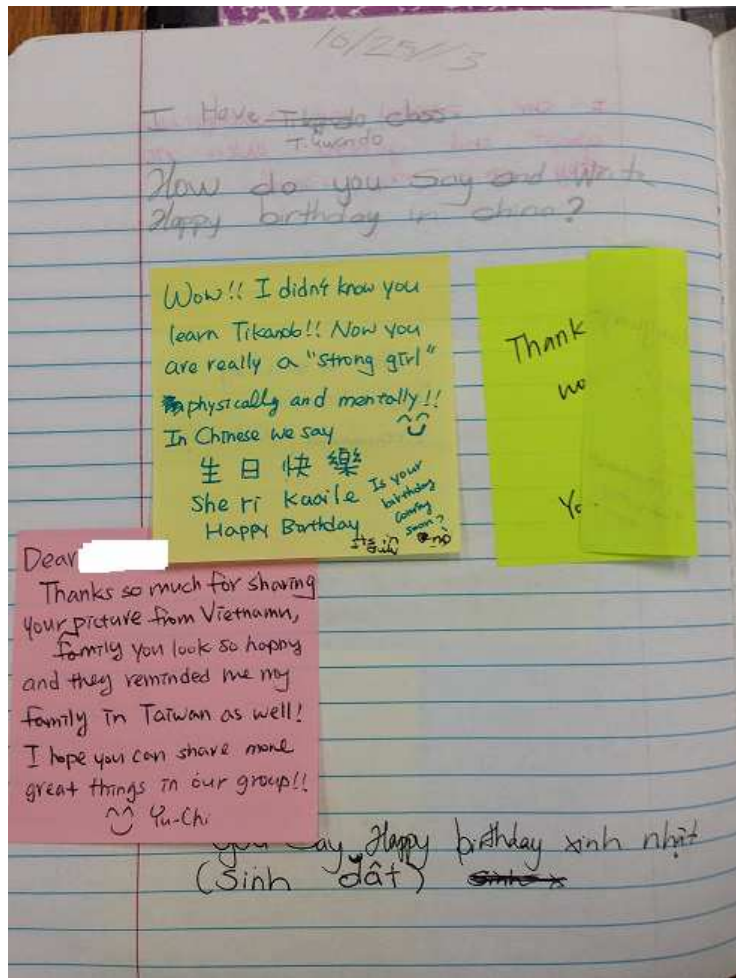 10/25/13
I Have Tikando class.
T.kwondo
How do you say and Write
Happy birthday in china?
Wow!! I didn't know you
learn Tikando!! Now you
are really a "strong girl"
physically and mentally!!
In Chinese we say
生日快樂
She ri Kuaile
Happy Birthday
Is your
birthday
coming
soon?
Thank
no
Yo
Dear
Thanks so much for sharing
your picture from Vietnamn,
family you look so happy
and they reminded me my
family in Taiwan as well!
I hope you can share more
great things in our group!!
Yu-Chi
you say Happy birthday xinh nhật
(Sinh dât)